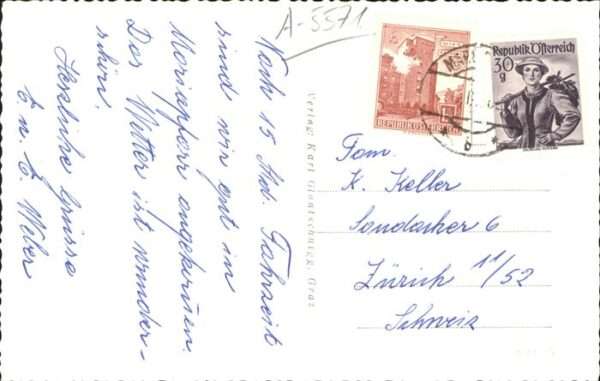 A-5571
Nach 15 Std. Fahrzeit
sind wir erst in
Mariapfarr angekommen.
Das Wetter ist wunder-
schön.
Herzliche Grüsse
E. u. E. Weber
Verlag: Karl Glantschnigg, Graz
REPUBLIK ÖSTERREICH
Republik Österreich
30
g
Fam.
K. Keller
Sondacker 6
Zürich 11/52
Schweiz